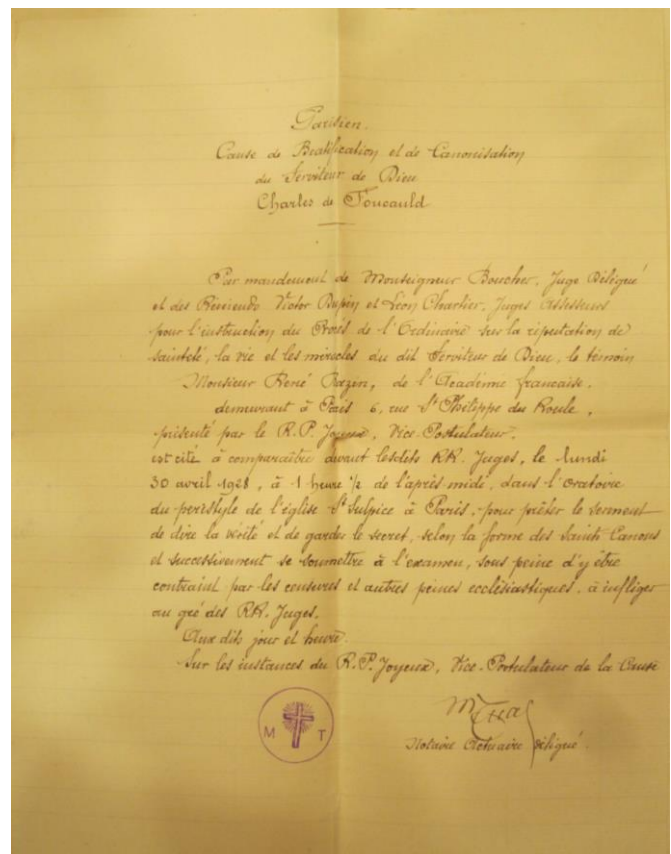 Parisien.
Cause de Béatification et de Canonisation
du Serviteur de Dieu
Charles de Foucauld
Par mandement de Monseigneur Boucher, Juge Délégué
et des Révérends Victor Dupin et Léon Chartier, Juges Assesseurs
pour l'instruction du Procès de l'Ordinaire sur la réputation de
sainteté, la vie et les miracles du dit Serviteur de Dieu, le témoin
Monsieur René Bazin, de l'Académie française,
demeurant à Paris 6, rue St Philippe du Roule,
présenté par le R. P. Joyeux, Vice-Postulateur,
est cité à comparaître devant lesdits RR. Juges, le lundi
30 avril 1928, à 1 heure ½ de l'après midi, dans l'oratoire
du peristyle de l'église St Sulpice à Paris, pour prêter le serment
de dire la vérité et de garder le secret, selon la forme des Saints Canons
et successivement se soumettre à l'examen, sous peine d'y être
contraint par les censures et autres peines ecclésiastiques, à infliger
au gré des RR. Juges.
Aux dits jour et heure.
Sur les instances du R. P. Joyeux, Vice-Postulateur de la Cause
M T
Notaire Actuaire délégué.